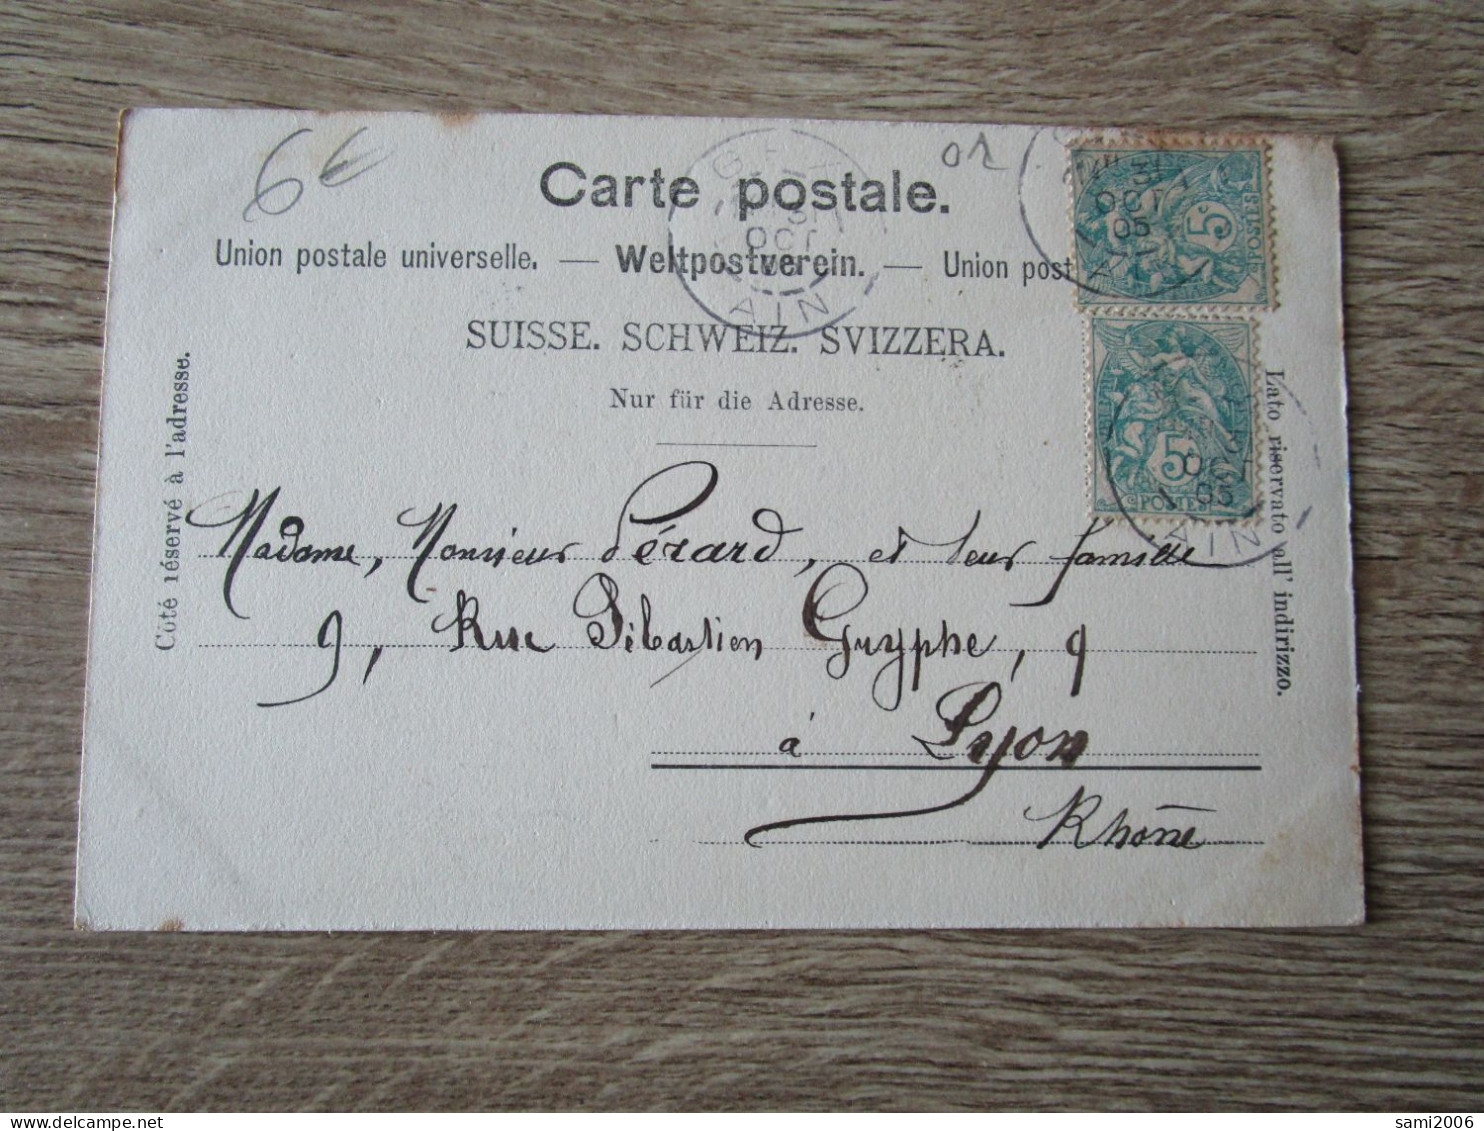 6€
01
Carte postale.
Union postale universelle. — Weltpostverein. — Union post
SUISSE. SCHWEIZ. SVIZZERA.
Nur für die Adresse.
Côté réservé à l'adresse.
Lato riservato all' indirizzo.
Madame, Monsieur Pérard, et leur famille
9, Rue Sébastien Gryphe, 9
à Lyon
Rhône
5c
POSTES
31
OCT
05
5
POSTES
OCT
05
AIN
OCT
AIN
sami2006